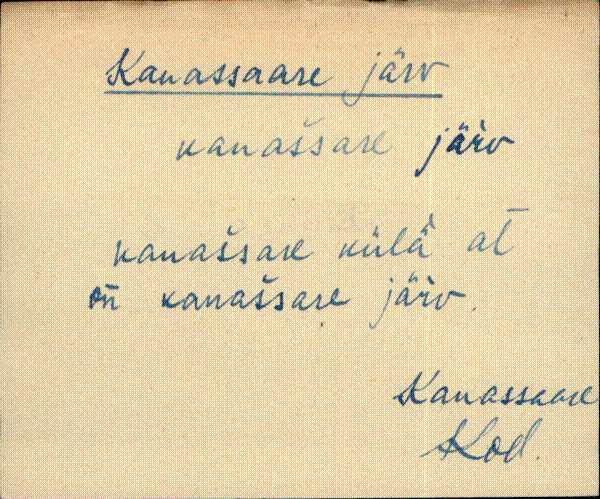 Kanassaare järv
kanašsare järv
kanašsare külä at
on kanašsare järv.
Kanassaare
Kod.